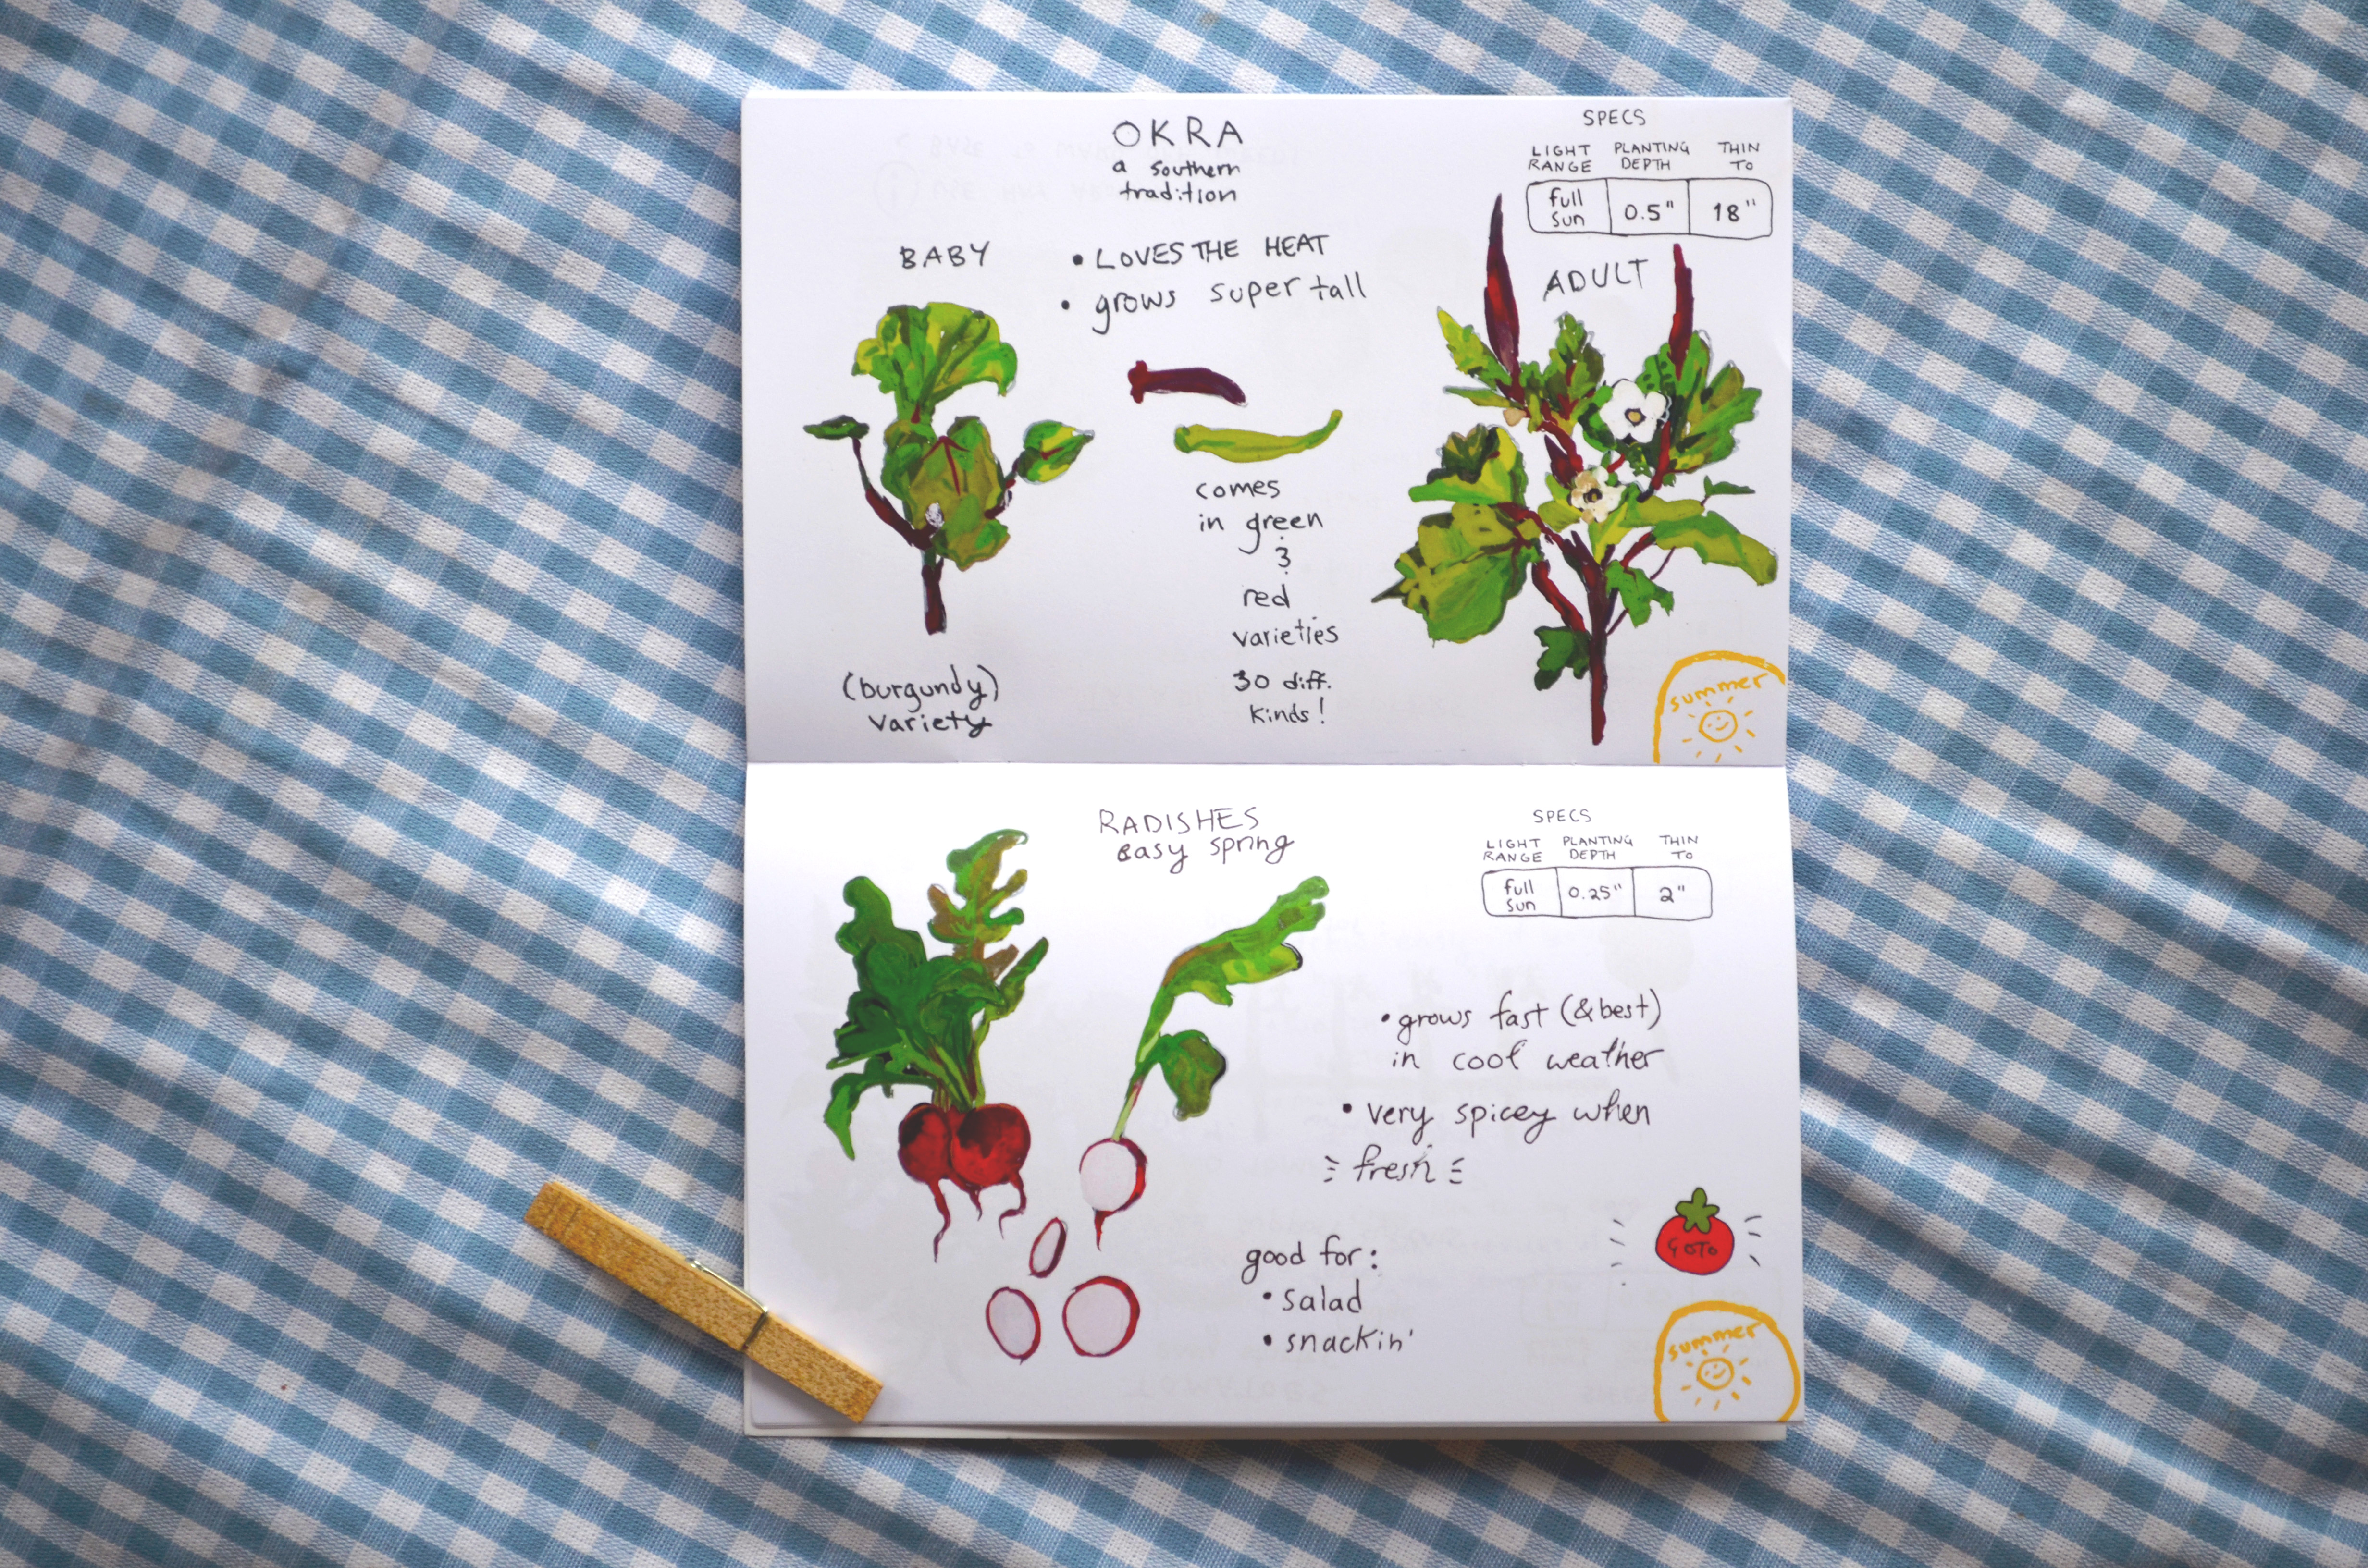 OKRA
a southern
tradition
SPECS
LIGHT RANGE
PLANTING DEPTH
THIN TO
full sun
0.5"
18"
BABY
• LOVES THE HEAT
• grows super tall
ADULT
comes
in green
&
red
varieties
30 diff.
kinds!
(burgundy)
variety
summer
RADISHES
easy spring
SPECS
LIGHT RANGE
PLANTING DEPTH
THIN TO
full sun
0.25"
2"
• grows fast (& best)
in cool weather
• very spicey when
fresh
good for:
• salad
• snackin'
GOTO
summer